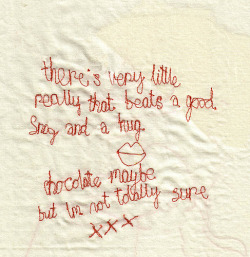 there's very little
really that beats a good
Snog and a hug.
chocolate maybe
but Im not totally sure
xxx